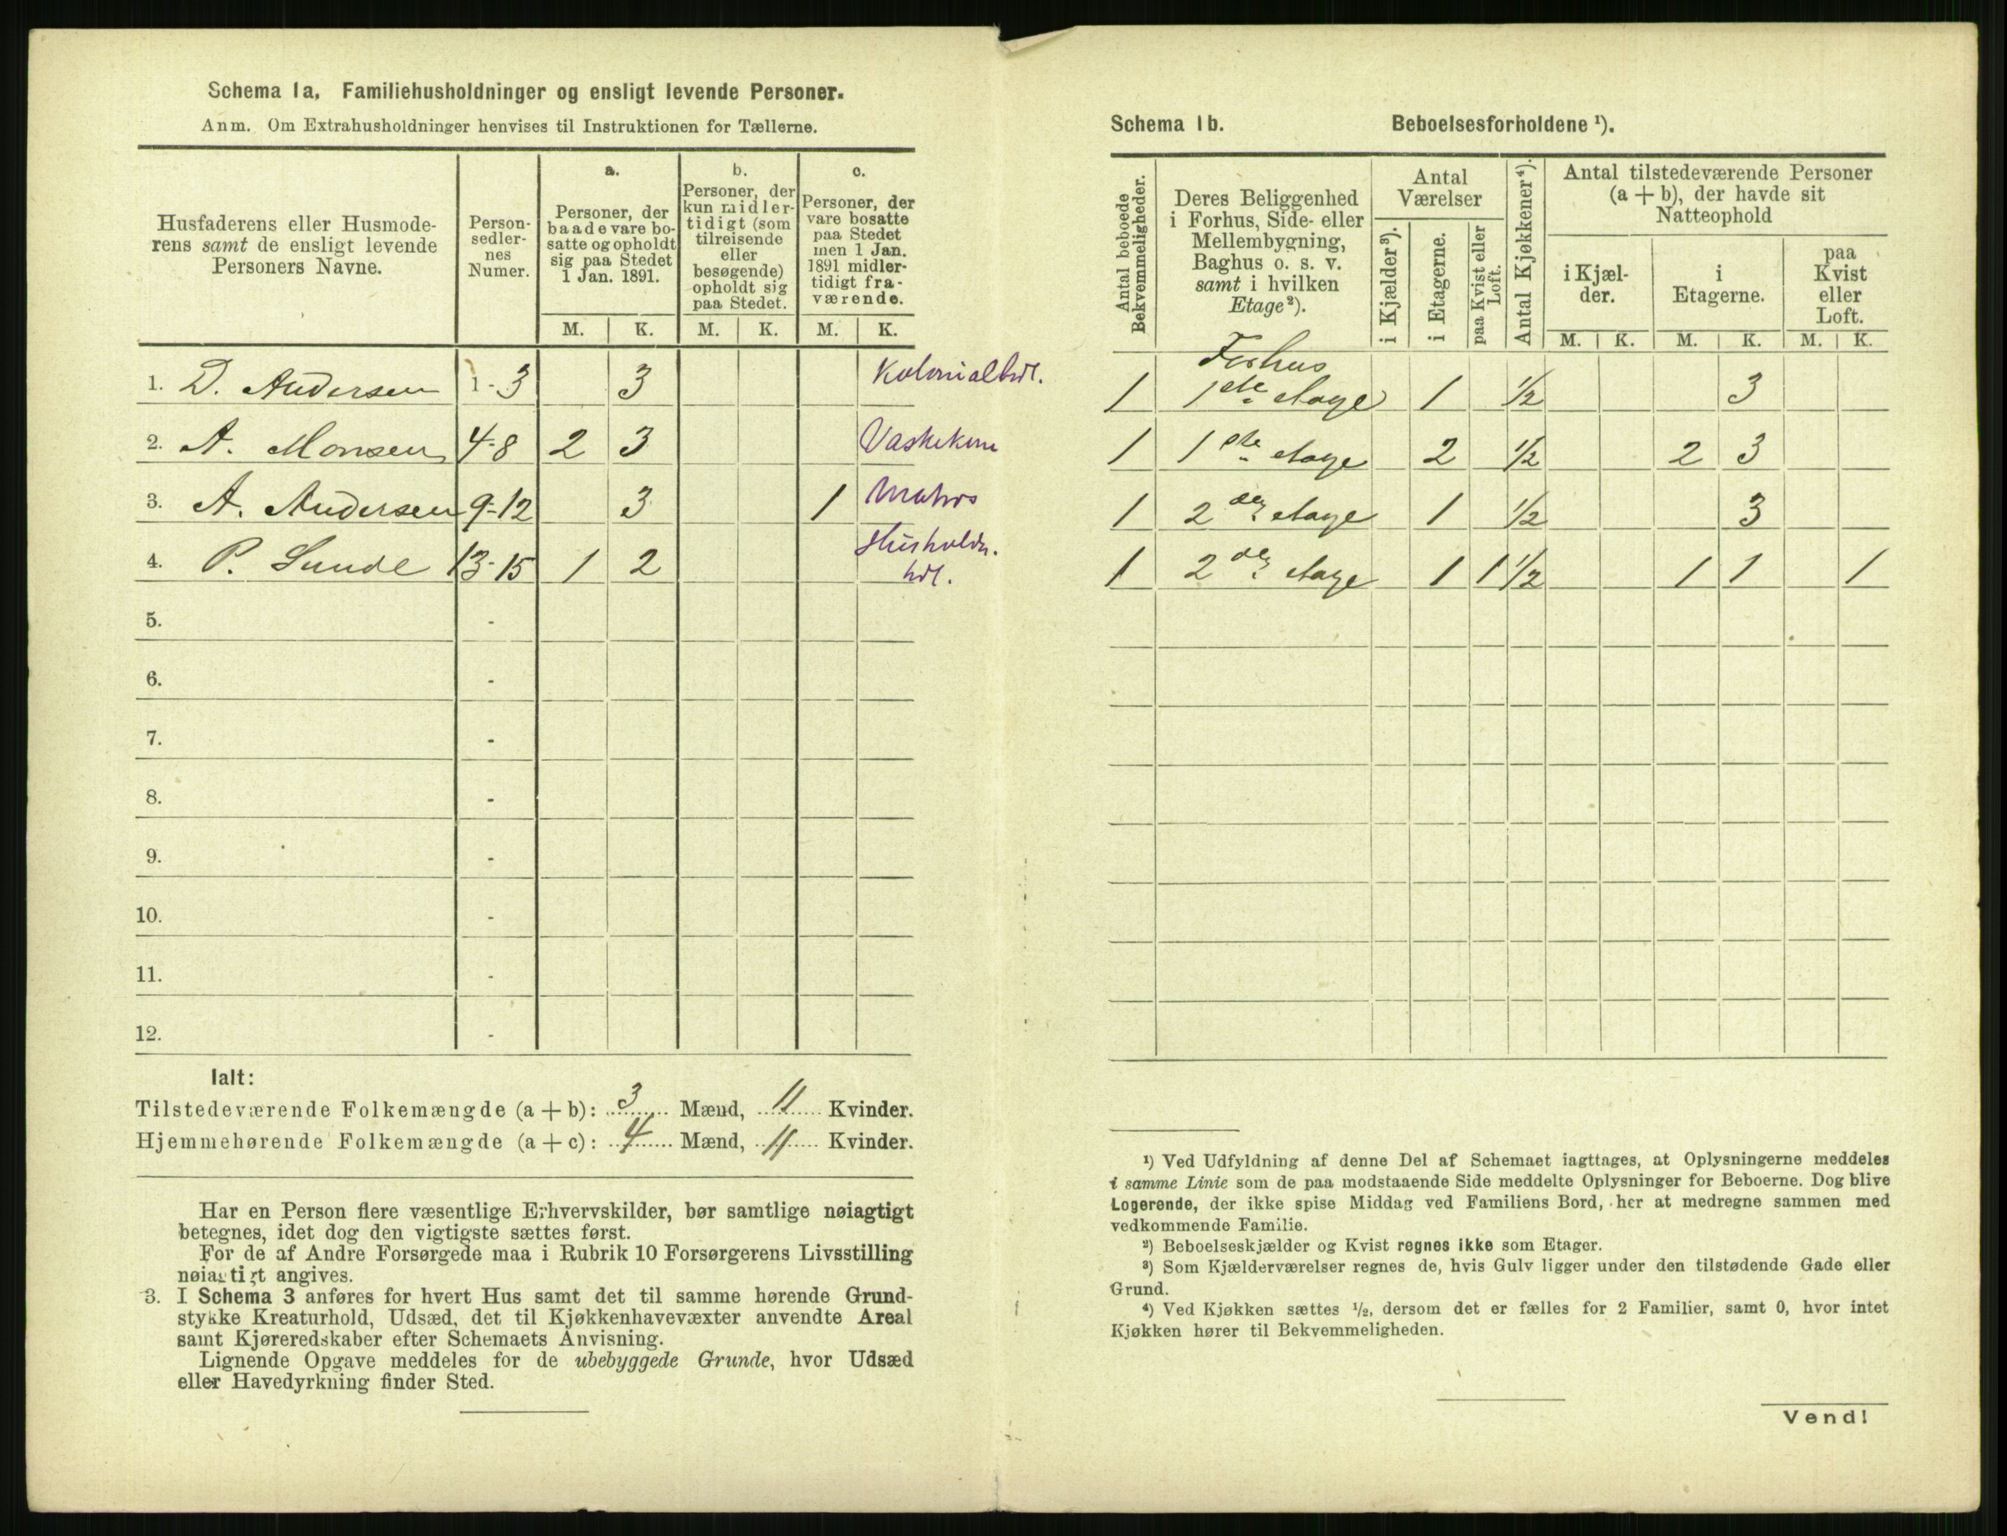 Schema 1a. Familiehusholdninger og ensligt levende Personer.
Anm. Om Extrahusholdninger henvises til Instruktionen for Tællerne.
Husfaderens eller Husmode-
rens samt de ensligt levende
Personers Navne.
Person-
sedler-
nes
Numer.
a.
Personer, der
baade vare bo-
satte og opholdt
sig paa Stedet
1 Jan. 1891.
b.
Personer, der
kun midler-
tidigt (som
tilreisende
eller
besøgende)
opholdt sig
paa Stedet.
c.
Personer, der
vare bosatte
paa Stedet
men 1 Jan.
1891 midler-
tidigt fra-
værende.
M. K. M. K. M. K.
1. D. Andersen 1 - 3 3 Kolonialhdl.
2. A. Monsen 4-8 2 3 Vaskekone
3. A. Andersen 9-12 3 1 Matros
4. P. Sunde 13-15 1 2 Husholdn.
hdl.
5. -
6. -
7. -
8. -
9. -
10. -
11. -
12. -
Ialt:
Tilstedeværende Folkemængde (a + b): 3 Mænd, 11 Kvinder.
Hjemmehørende Folkemængde (a + c): 4 Mænd, 11 Kvinder.
Har en Person flere væsentlige Erhvervskilder, bør samtlige nøiagtigt
betegnes, idet dog den vigtigste sættes først.
For de af Andre Forsørgede maa i Rubrik 10 Forsørgerens Livsstilling
nøiagtigt angives.
3. I Schema 3 anføres for hvert Hus samt det til samme hørende Grund-
stykke Kreaturhold, Udsæd, det til Kjøkkenhavevæxter anvendte Areal
samt Kjøreredskaber efter Schemaets Anvisning.
Lignende Opgave meddeles for de ubebyggede Grunde, hvor Udsæd
eller Havedyrkning finder Sted.
Schema 1b. Beboelsesforholdene ¹).
Antal beboede
Bekvemmeligheder.
Deres Beliggenhed
i Forhus, Side- eller
Mellembygning,
Baghus o. s. v.
samt i hvilken
Etage²).
Antal
Værelser
i Kjælder³).
i Etagerne.
paa Kvist eller
Loft.
Antal Kjøkkener⁴).
Antal tilstedeværende Personer
(a + b), der havde sit
Natteophold
i Kjæl-
der.
i
Etagerne.
paa
Kvist
eller
Loft.
M. K. M. K. M. K.
Forhus
1 1ste etage 1 ½ 3
1 1ste etage 2 ½ 2 3
1 2den etage 1 ½ 3
1 2den etage 1 1 ½ 1 1 1
¹) Ved Udfyldning af denne Del af Schemaet iagttages, at Oplysningerne meddeles
i samme Linie som de paa modstaaende Side meddelte Oplysninger for Beboerne. Dog blive
Logerende, der ikke spise Middag ved Familiens Bord, her at medregne sammen med
vedkommende Familie.
²) Beboelseskjælder og Kvist regnes ikke som Etager.
³) Som Kjælderværelser regnes de, hvis Gulv ligger under den tilstødende Gade eller
Grund.
⁴) Ved Kjøkken sættes ½, dersom det er fælles for 2 Familier, samt 0, hvor intet
Kjøkken hører til Bekvemmeligheden.
Vend!